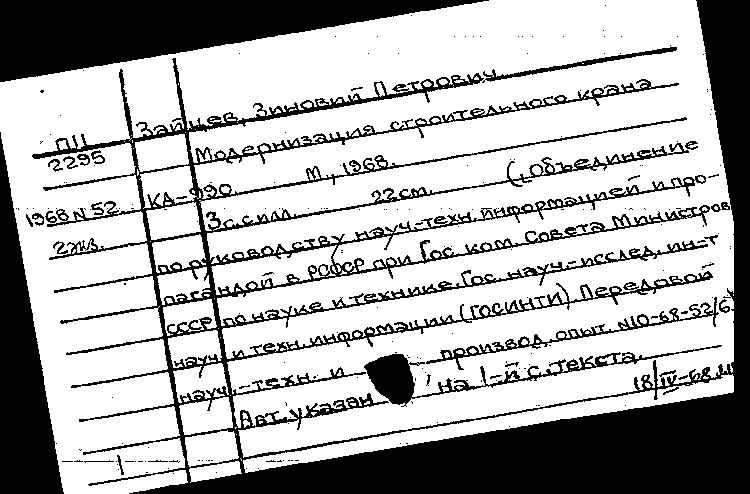 Зайцев, Зиновий Петрович
ПП
2295
Модернизация строительного крана
1968 N 52
КА-990. М., 1968.
2 экз.
3 с. с илл. 22 см. (Объединение
по руководству науч.-техн. информацией и про-
пагандой в РСФСР при Гос. ком. Совета Министров
СССР по науке и технике. Гос. науч.-исслед. ин-т
науч. и техн. информации (ГОСИНТИ). Передовой
науч.-техн. и производ. опыт. N10-68-52/6
Авт. указан на 1-й с. текста.
18/IV-68